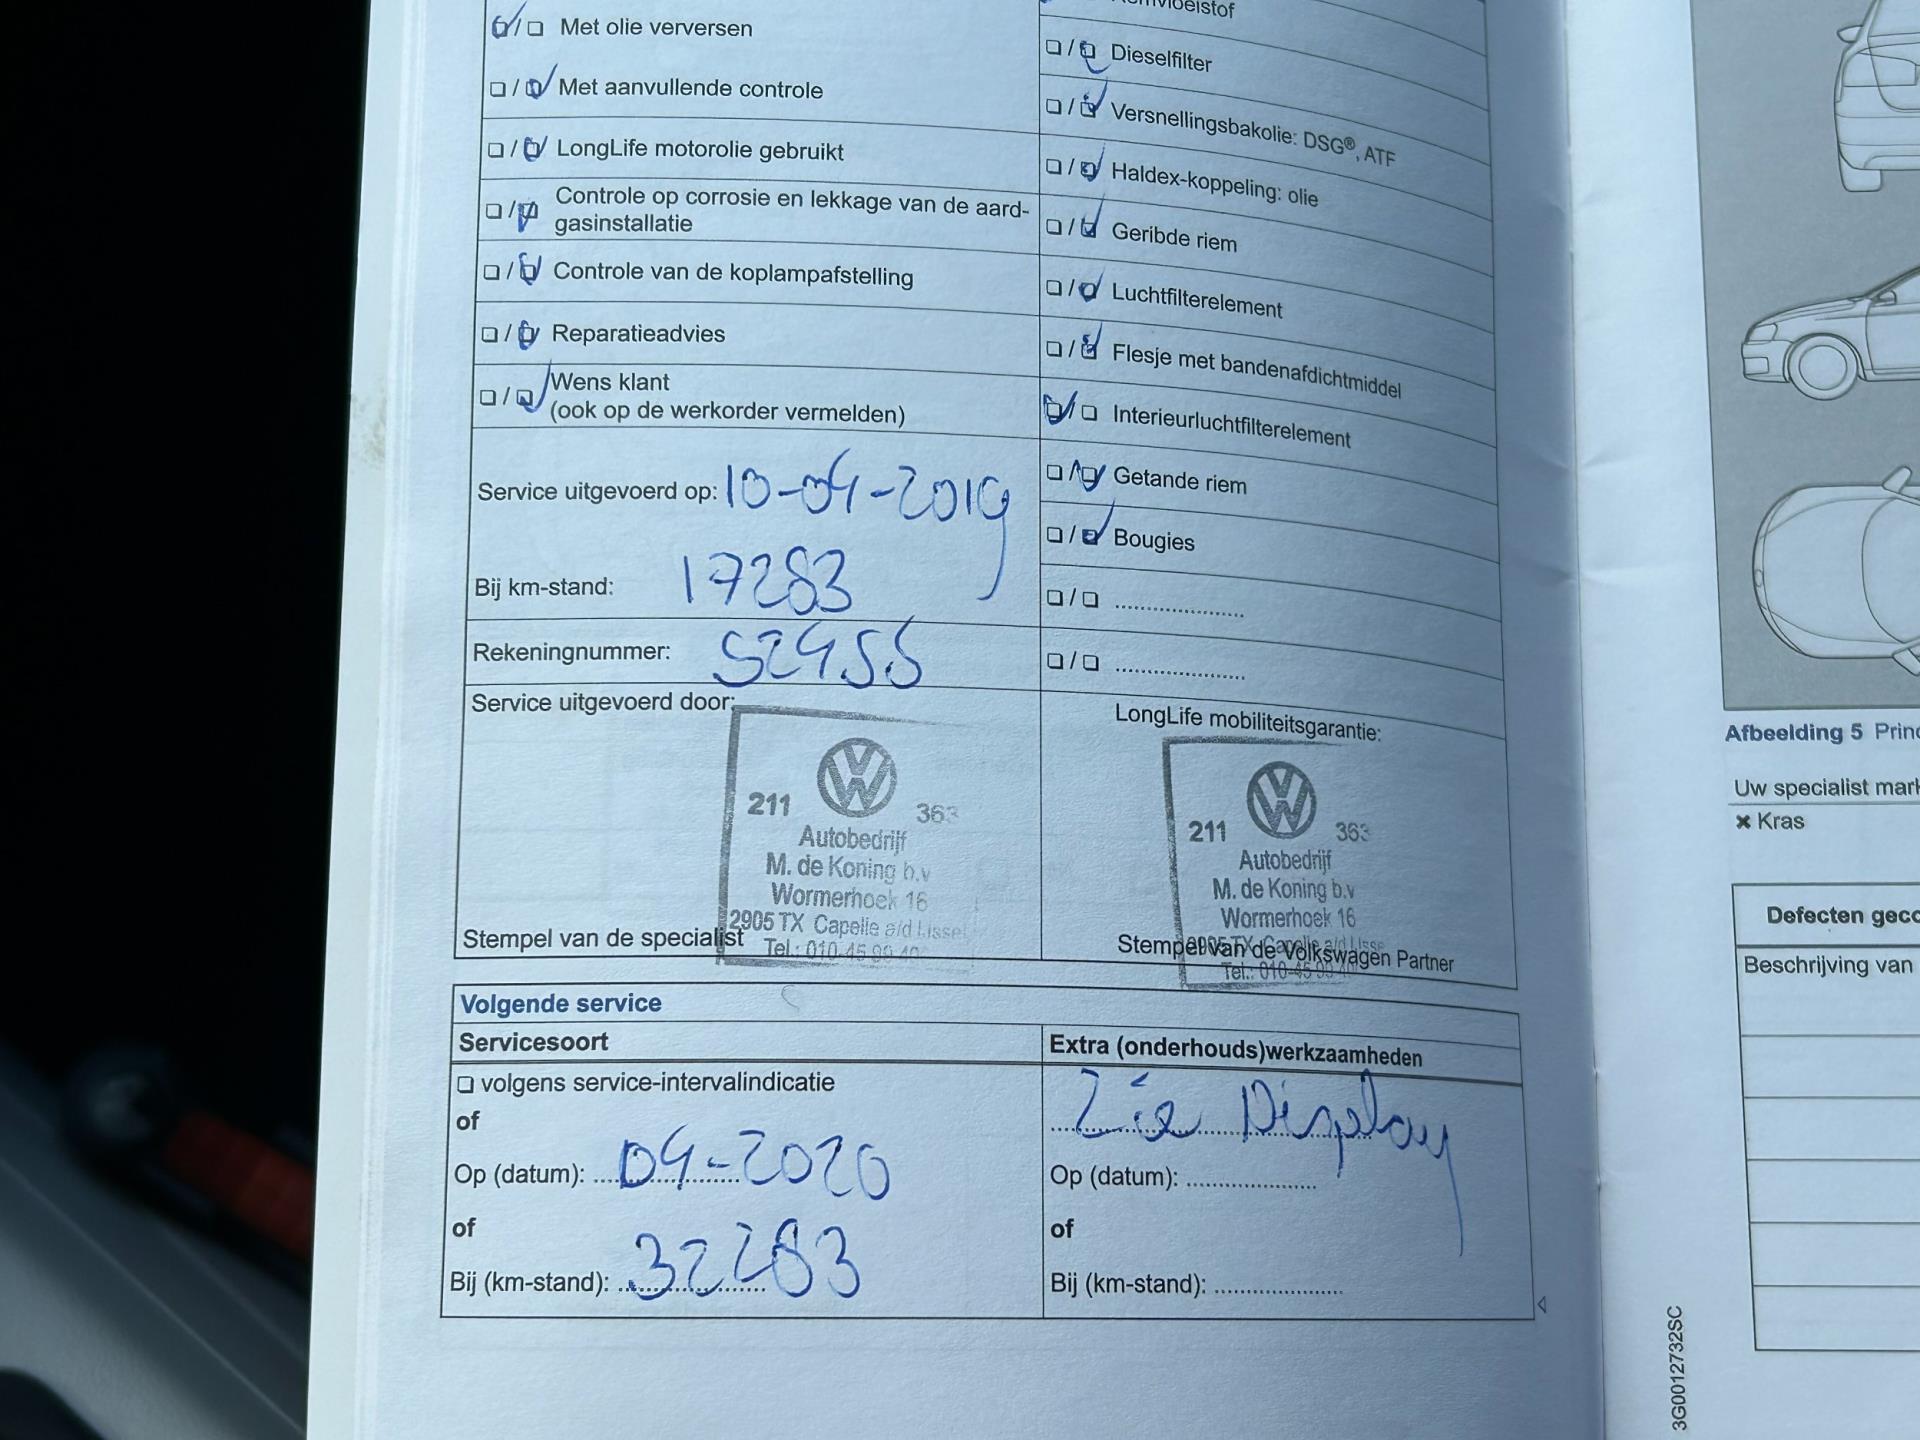 ❏/❏ Met olie verversen
❏/❏ Met aanvullende controle
❏/❏ LongLife motorolie gebruikt
❏/❏ Controle op corrosie en lekkage van de aard-
gasinstallatie
❏/❏ Controle van de koplampafstelling
❏/❏ Reparatieadvies
❏/❏ Wens klant
(ook op de werkorder vermelden)
Service uitgevoerd op: 10-04-2019
Bij km-stand: 17283
Rekeningnummer: 52455
Service uitgevoerd door:
211 363
Autobedrijf
M. de Koning b.v
Wormerhoek 16
2905 TX Capelle a/d IJssel
Tel.: 010-45
Stempel van de specialist
❏/❏ Dieselfilter
❏/❏ Versnellingsbakolie: DSG®, ATF
❏/❏ Haldex-koppeling: olie
❏/❏ Geribde riem
❏/❏ Luchtfilterelement
❏/❏ Flesje met bandenafdichtmiddel
❏/❏ Interieurluchtfilterelement
❏/❏ Getande riem
❏/❏ Bougies
❏/❏ ......................
❏/❏ ......................
LongLife mobiliteitsgarantie:
211 363
Autobedrijf
M. de Koning b.v
Wormerhoek 16
2905 TX Capelle a/d IJsse
Tel.: 010-45
Stempel van de Volkswagen Partner
Volgende service
Servicesoort
❏ volgens service-intervalindicatie
of
Op (datum): 04-2020
of
Bij (km-stand): 32283
Extra (onderhouds)werkzaamheden
Zie Display
Op (datum): ......................
of
Bij (km-stand): ......................
Afbeelding 5
Uw specialist
✖ Kras
Defecten
Beschrijving van
3G0012732SC